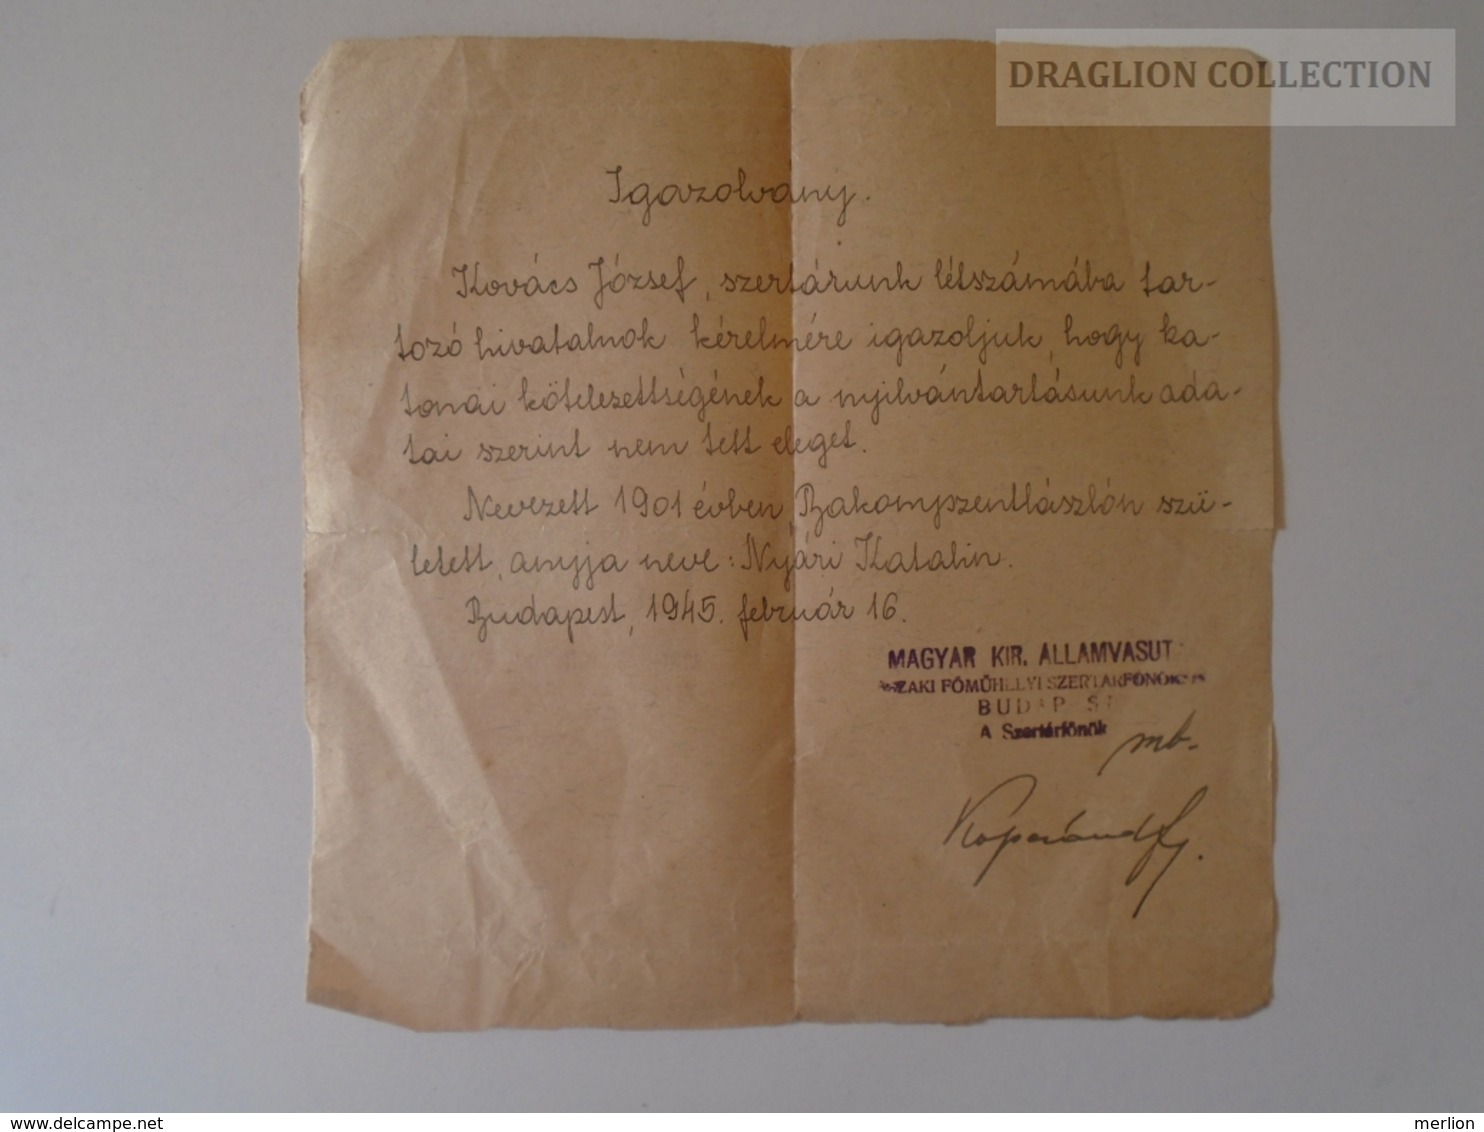 DRAGLION COLLECTION
Igazolvány.
Kovács József, szertárunk létszámába tar-
tozó hivatalnok kérelmére igazoljuk, hogy ka-
tonai kötelezettségének a nyilvántartásunk ada-
tai szerint nem tett eleget.
Nevezett 1901 évben, Bakonyszentlászlón szü-
letett, anyja neve: Nyári Katalin.
Budapest, 1945. február 16.
MAGYAR KIR. ÁLLAMVASUT
ZAKI FŐMŰHELYI SZERTÁRFŐNÖK
BUDAPEST
A Szertárfőnök
mb.
delcampe.net
merlion